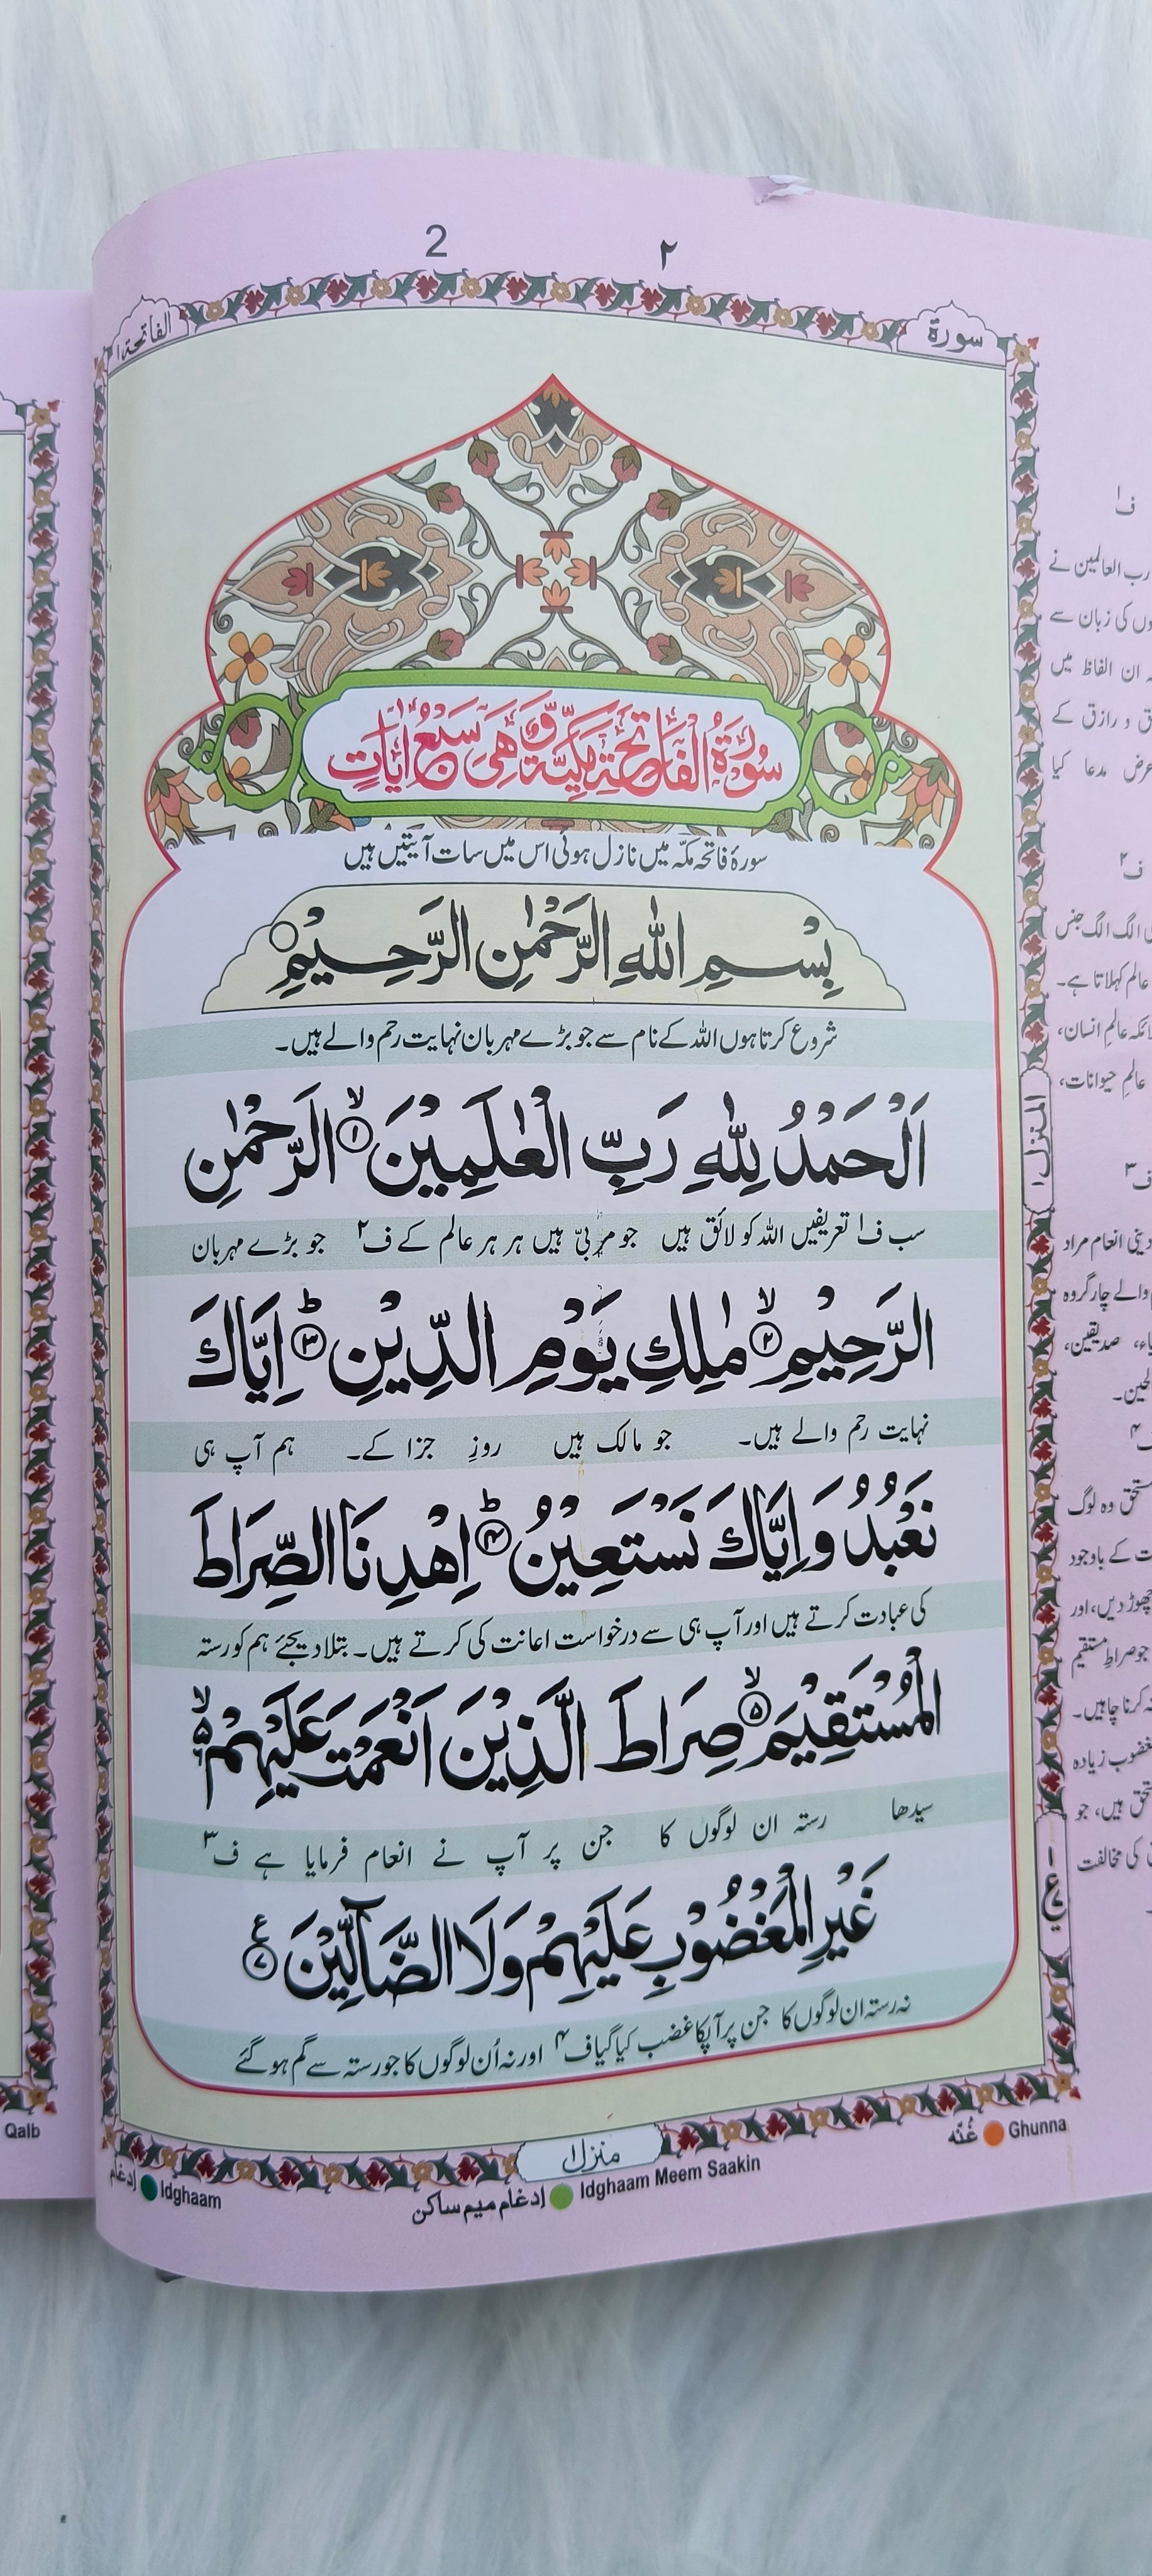 2 ٢
سورة الفاتحة ١
سُوْرَةُ الْفَاتِحَةِ مَكِّيَّةٌ وَّهِىَ سَبْعُ اٰيَاتٍ
سورۂ فاتحہ مکّہ میں نازل ہوئی اس میں سات آیتیں ہیں
بِسْمِ اللّٰهِ الرَّحْمٰنِ الرَّحِيْمِ ۝
شروع کرتا ہوں اللہ کے نام سے جو بڑے مہربان نہایت رحم والے ہیں۔
اَلْحَمْدُ لِلّٰهِ رَبِّ الْعٰلَمِيْنَ ۙ﴿۱﴾ الرَّحْمٰنِ
سب ف۱ تعریفیں اللہ کو لائق ہیں جو مربیّ ہیں ہر ہر عالم کے ف۲ جو بڑے مہربان
الرَّحِيْمِ ۙ﴿۲﴾ مٰلِكِ يَوْمِ الدِّيْنِ ؕ﴿۳﴾ اِيَّاكَ
نہایت رحم والے ہیں۔ جو مالک ہیں روزِ جزا کے۔ ہم آپ ہی
نَعْبُدُ وَاِيَّاكَ نَسْتَعِيْنُ ؕ﴿۴﴾ اِهْدِنَا الصِّرَاطَ
کی عبادت کرتے ہیں اور آپ ہی سے درخواست اعانت کی کرتے ہیں۔ بتلا دیجئے ہم کو رستہ
الْمُسْتَقِيْمَ ۙ﴿۵﴾ صِرَاطَ الَّذِيْنَ اَنْعَمْتَ عَلَيْهِمْ ۙ۬
سیدھا رستہ ان لوگوں کا جن پر آپ نے انعام فرمایا ہے ف۳
غَيْرِ الْمَغْضُوْبِ عَلَيْهِمْ وَلَا الضَّآلِّيْنَ ﴿۷﴾ ع
نہ رستہ ان لوگوں کا جن پر آپکا غضب کیا گیا ف۴ اور نہ اُن لوگوں کا جو رستہ سے گم ہو گئے
منزل ۱
غُنّه Ghunna
إدغام ميم ساكن Idghaam Meem Saakin
إدغام Idghaam
Qalb
المنزل ۱
ف۱
رب العالمین نے
کی زبان سے
ان الفاظ میں
و رازق کے
عرض مدعا کیا
ف۲
الگ الگ جنس
عالم کہلاتا ہے۔
عالمِ انسان،
عالمِ حیوانات،
ف۳
دینی انعام مراد
والے چار گروہ
صدیقین،
مستحق وہ لوگ
کے باوجود
چھوڑ دیں، اور
جو صراطِ مستقیم
کرنا چاہیں۔
زیادہ
ہیں، جو
کی مخالفت